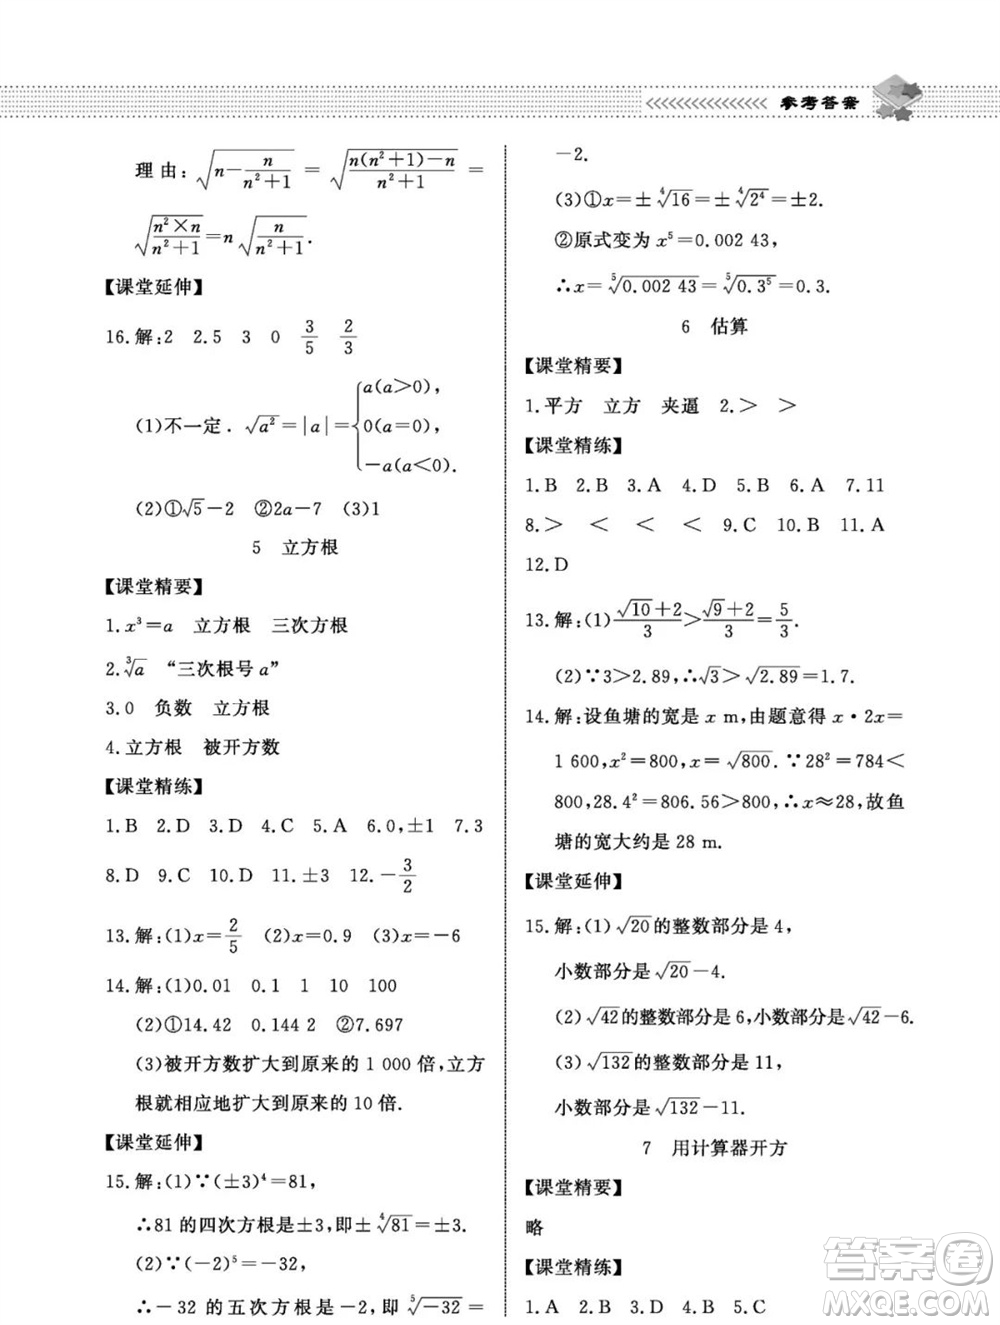 参考答案
理由:√(n-n/(n²+1))=√((n(n²+1)-n)/(n²+1))=
√((n²×n)/(n²+1))=n√(n/(n²+1)).
【课堂延伸】
16.解:2 2.5 3 0 3/5 2/3
(1)不一定.√a²=|a|={a(a>0),
0(a=0),
-a(a<0).
(2)①√5-2 ②2a-7 (3)1
5 立方根
【课堂精要】
1.x³=a 立方根 三次方根
2.∛a “三次根号a”
3.0 负数 立方根
4.立方根 被开方数
【课堂精练】
1.B 2.D 3.D 4.C 5.A 6.0,±1 7.3
8.D 9.C 10.D 11.±3 12.-3/2
13.解:(1)x=2/5 (2)x=0.9 (3)x=-6
14.解:(1)0.01 0.1 1 10 100
(2)①14.42 0.144 2 ②7.697
(3)被开方数扩大到原来的1 000倍,立方
根就相应地扩大到原来的10倍.
【课堂延伸】
15.解:(1)∵(±3)⁴=81,
∴81的四次方根是±3,即±∜81=±3.
(2)∵(-2)⁵=-32,
∴-32的五次方根是-2,即⁵√-32=
-2.
(3)①x=±∜16=±∜2⁴=±2.
②原式变为x⁵=0.002 43,
∴x=⁵√0.002 43=⁵√0.3⁵=0.3.
6 估算
【课堂精要】
1.平方 立方 夹逼 2.> >
【课堂精练】
1.B 2.B 3.A 4.D 5.B 6.A 7.11
8.> < < < 9.C 10.B 11.A
12.D
13.解:(1)(√10+2)/3>(√9+2)/3=5/3.
(2)∵3>2.89,∴√3>√2.89=1.7.
14.解:设鱼塘的宽是x m,由题意得x·2x=
1 600,x²=800,x=√800.∵28²=784<
800,28.4²=806.56>800,∴x≈28,故鱼
塘的宽大约是28 m.
【课堂延伸】
15.解:(1)√20的整数部分是4,
小数部分是√20-4.
(2)√42的整数部分是6,小数部分是√42-6.
(3)√132的整数部分是11,
小数部分是√132-11.
7 用计算器开方
【课堂精要】
略
【课堂精练】
1.A 2.B 3.A 4.D 5.B 6.C
答案圈
MXQE.COM